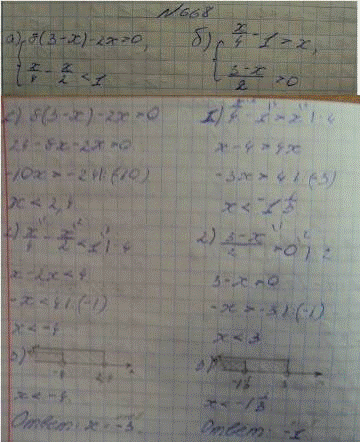 №668
а) { 8(3-x)-2x>0,
x/4 - x/2 < 1
б) { x/4 - 1 > x,
3-x/2 > 0
1) 8(3-x)-2x>0
24-8x-2x>0
-10x>-24 |:(-10)
x<2,4
2) x/4 - x/2 < 1 |·4
x-2x<4
-x<4 |:(-1)
3)
-4
x<-4
Ответ: x=-3.
1) x/4 - 1 > x |·4
x-4>4x
-3x>4 |:(-3)
x<-1 1/3
2) 3-x/2 > 0 |·2
3-x>0
-x>-3 |:(-1)
x<3
3)
-1 1/3 3
x<-1 1/3
Ответ: